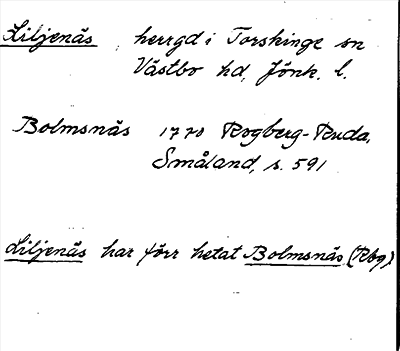 Liljenäs herrgd i Torskinge sn
Västbo hd, Jönk. l.
Bolmsnäs 1770 Rogberg-Ruda,
Småland, s. 591
Liljenäs har förr hetat Bolmsnäs (Rbg)